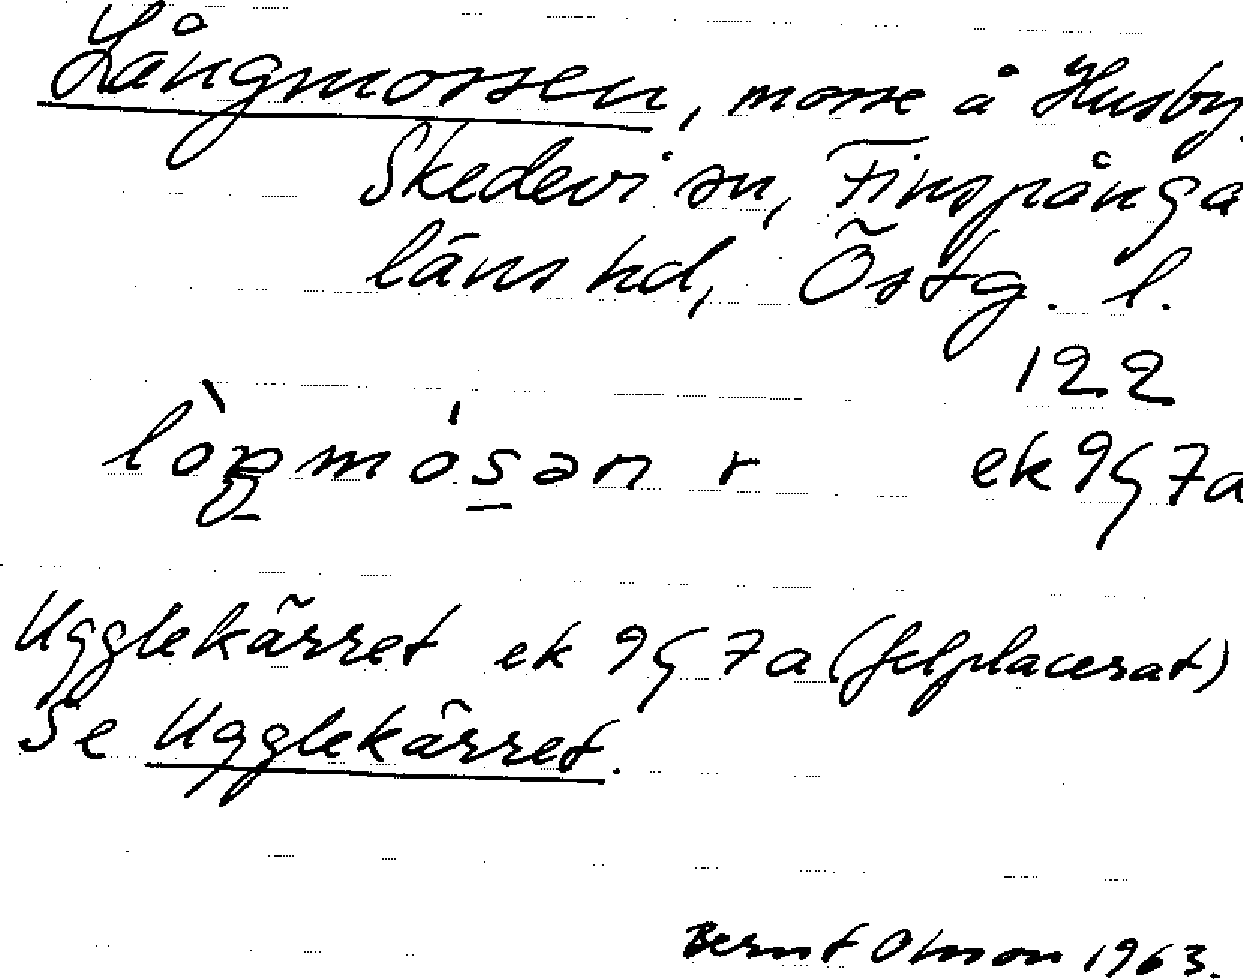 Långmossen, mosse å Husby,
Skedevi sn, Finspånga
läns hd, Östg. l.
122
ek 9G 7a
Ugglekärret ek 9G 7a (felplacerat)
Se Ugglekärret.
Bernt Olsson 1963.